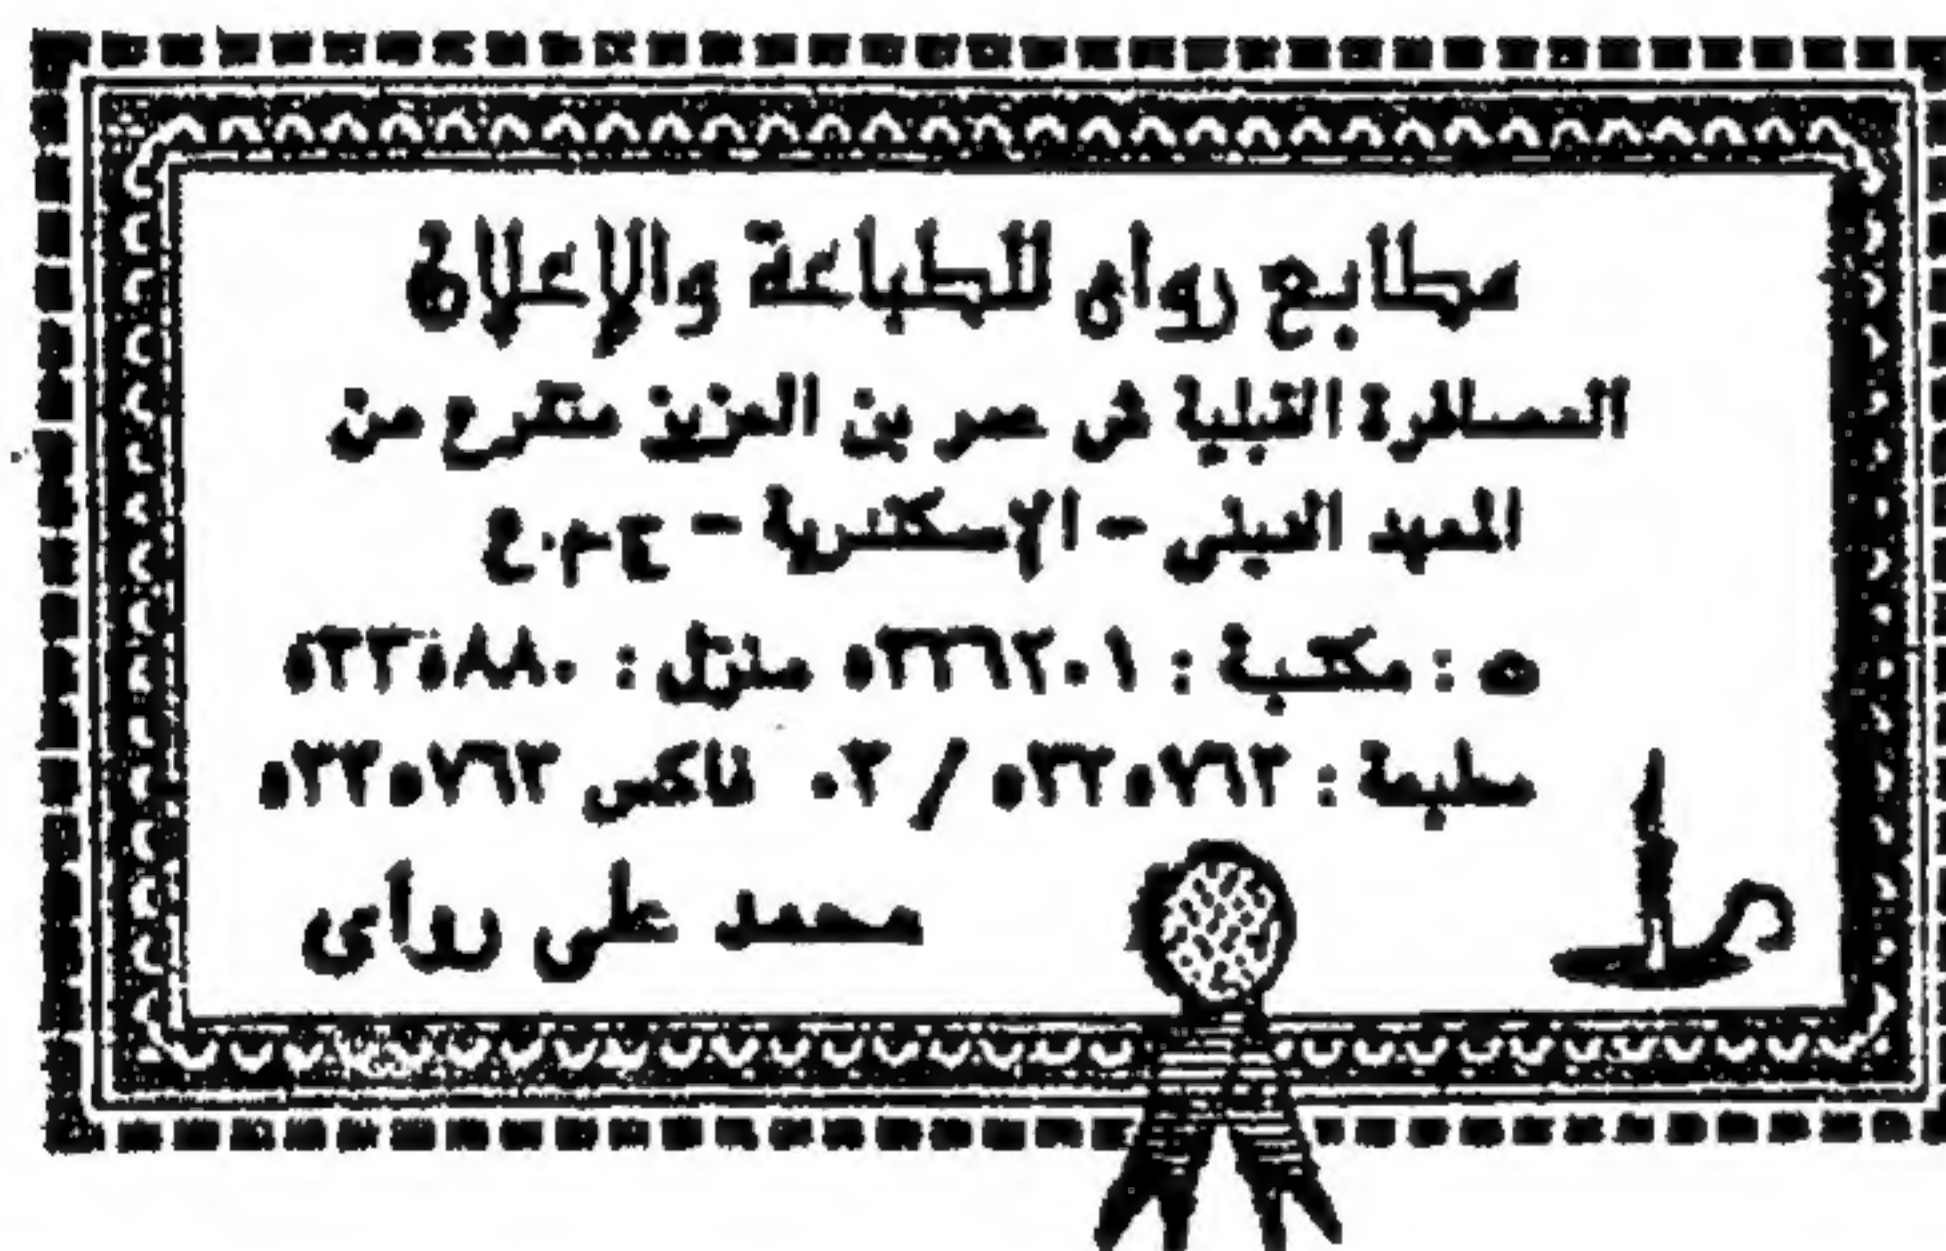 مطابع رواى للطباعة والإعلان
العصافرة القبلية ش عمر بن العزيز متفرع من
المعهد الدينى - الإسكندرية - ج.م.ع
ت : مكتبة : ٥٣٢٦٢٠١ منزل : ٥٣٣٥٨٨٠
مطبعة : ٥٣٢٥٧٦٢ / ٠٣ فاكس ٥٣٢٥٧٦٢
محمد على رواى